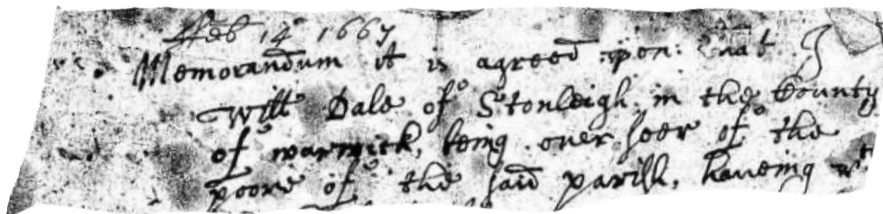 Feb 14 1667
Memorandum it is agreed upon: that I
Will Dale of Stonleigh in the County
of warwick, being over seer of the
poore of the said parish, haveing wth